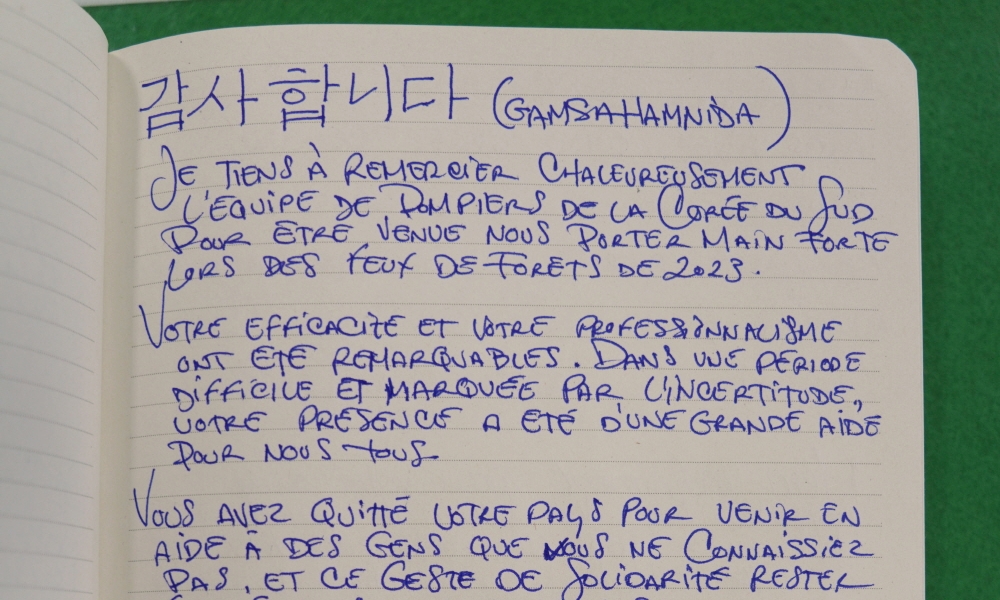 감사합니다 (GAMSAHAMNIDA)
JE TIENS À REMERCIER CHALEUREUSEMENT
L'ÉQUIPE DE POMPIERS DE LA CORÉE DU SUD
POUR ÊTRE VENUE NOUS PORTER MAIN FORTE
LORS DES FEUX DE FORÊTS DE 2023.
VOTRE EFFICACITÉ ET VOTRE PROFESSIONNALISME
ONT ÉTÉ REMARQUABLES. DANS UNE PÉRIODE
DIFFICILE ET MARQUÉE PAR L'INCERTITUDE,
VOTRE PRÉSENCE A ÉTÉ D'UNE GRANDE AIDE
POUR NOUS TOUS
VOUS AVEZ QUITTÉ VOTRE PAYS POUR VENIR EN
AIDE À DES GENS QUE VOUS NE CONNAISSIEZ
PAS, ET CE GESTE DE SOLIDARITÉ RESTER